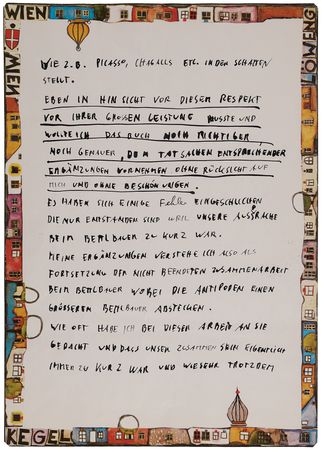 WIEN
WIEN
LÖWENG
WIE Z.B. PICASSO, CHAGALLS ETC. IN DEN SCHATTEN
STELLT.
EBEN IN HINSICHT VOR DIESEM RESPEKT
VOR IHRER GROSSEN LEISTUNG MUSSTE UND
WOLLTE ICH DAS BUCH NOCH RICHTIGER
NOCH GENAUER, DEN TATSACHEN ENTSPRECHENDER
ERGÄNZUNGEN VORNEHMEN OHNE RÜCKSICHT AUF
MICH UND OHNE BESCHÖNUNGEN.
ES HABEN SICH EINIGE Fehler EINGESCHLICHEN
DIE NUR ENTSTANDEN SIND WEIL UNSERE AUSSPRACHE
BEIM BETTLBAUER ZU KURZ WAR.
MEINE ERGÄNZUNGEN VERSTEHE ICH ALSO ALS
FORTSETZUNG DER NICHT BEENDETEN ZUSAMMENARBEIT
BEIM BETTLBAUER WOBEI DIE ANTIPODEN EINEN
GRÖSSEREN BETTLBAUER ABSTECHEN.
WIE OFT HABE ICH BEI DIESER ARBEIT AN SIE
GEDACHT UND DASS UNSER ZUSAMMENSEIN EIGENTLICH
IMMER ZU KURZ WAR UND WIE SEHR TROTZDEM
KEGEL